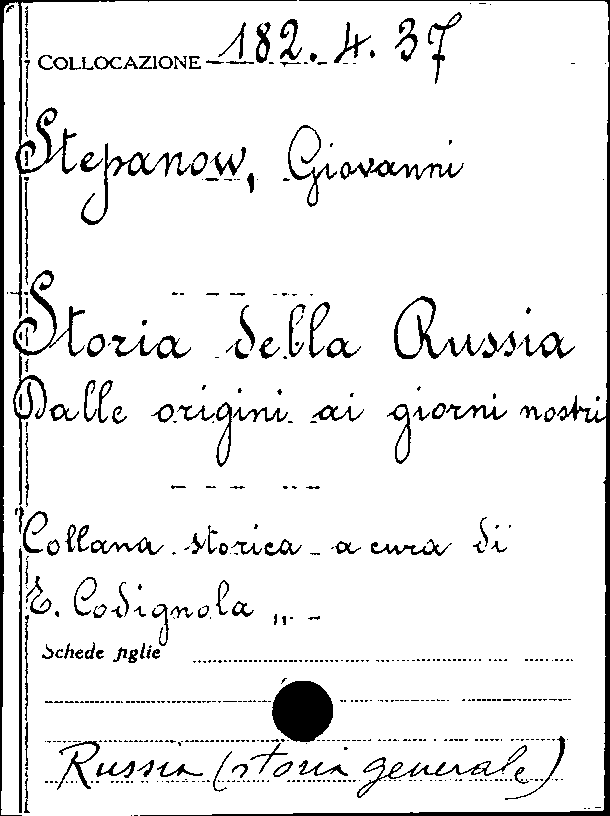 COLLOCAZIONE 182.4.37
Stepanow, Giovanni
Storia della Russia
Dalle origini ai giorni nostri
Collana storica a cura di
E. Codignola „
Schede figlie
Russia (storia generale)